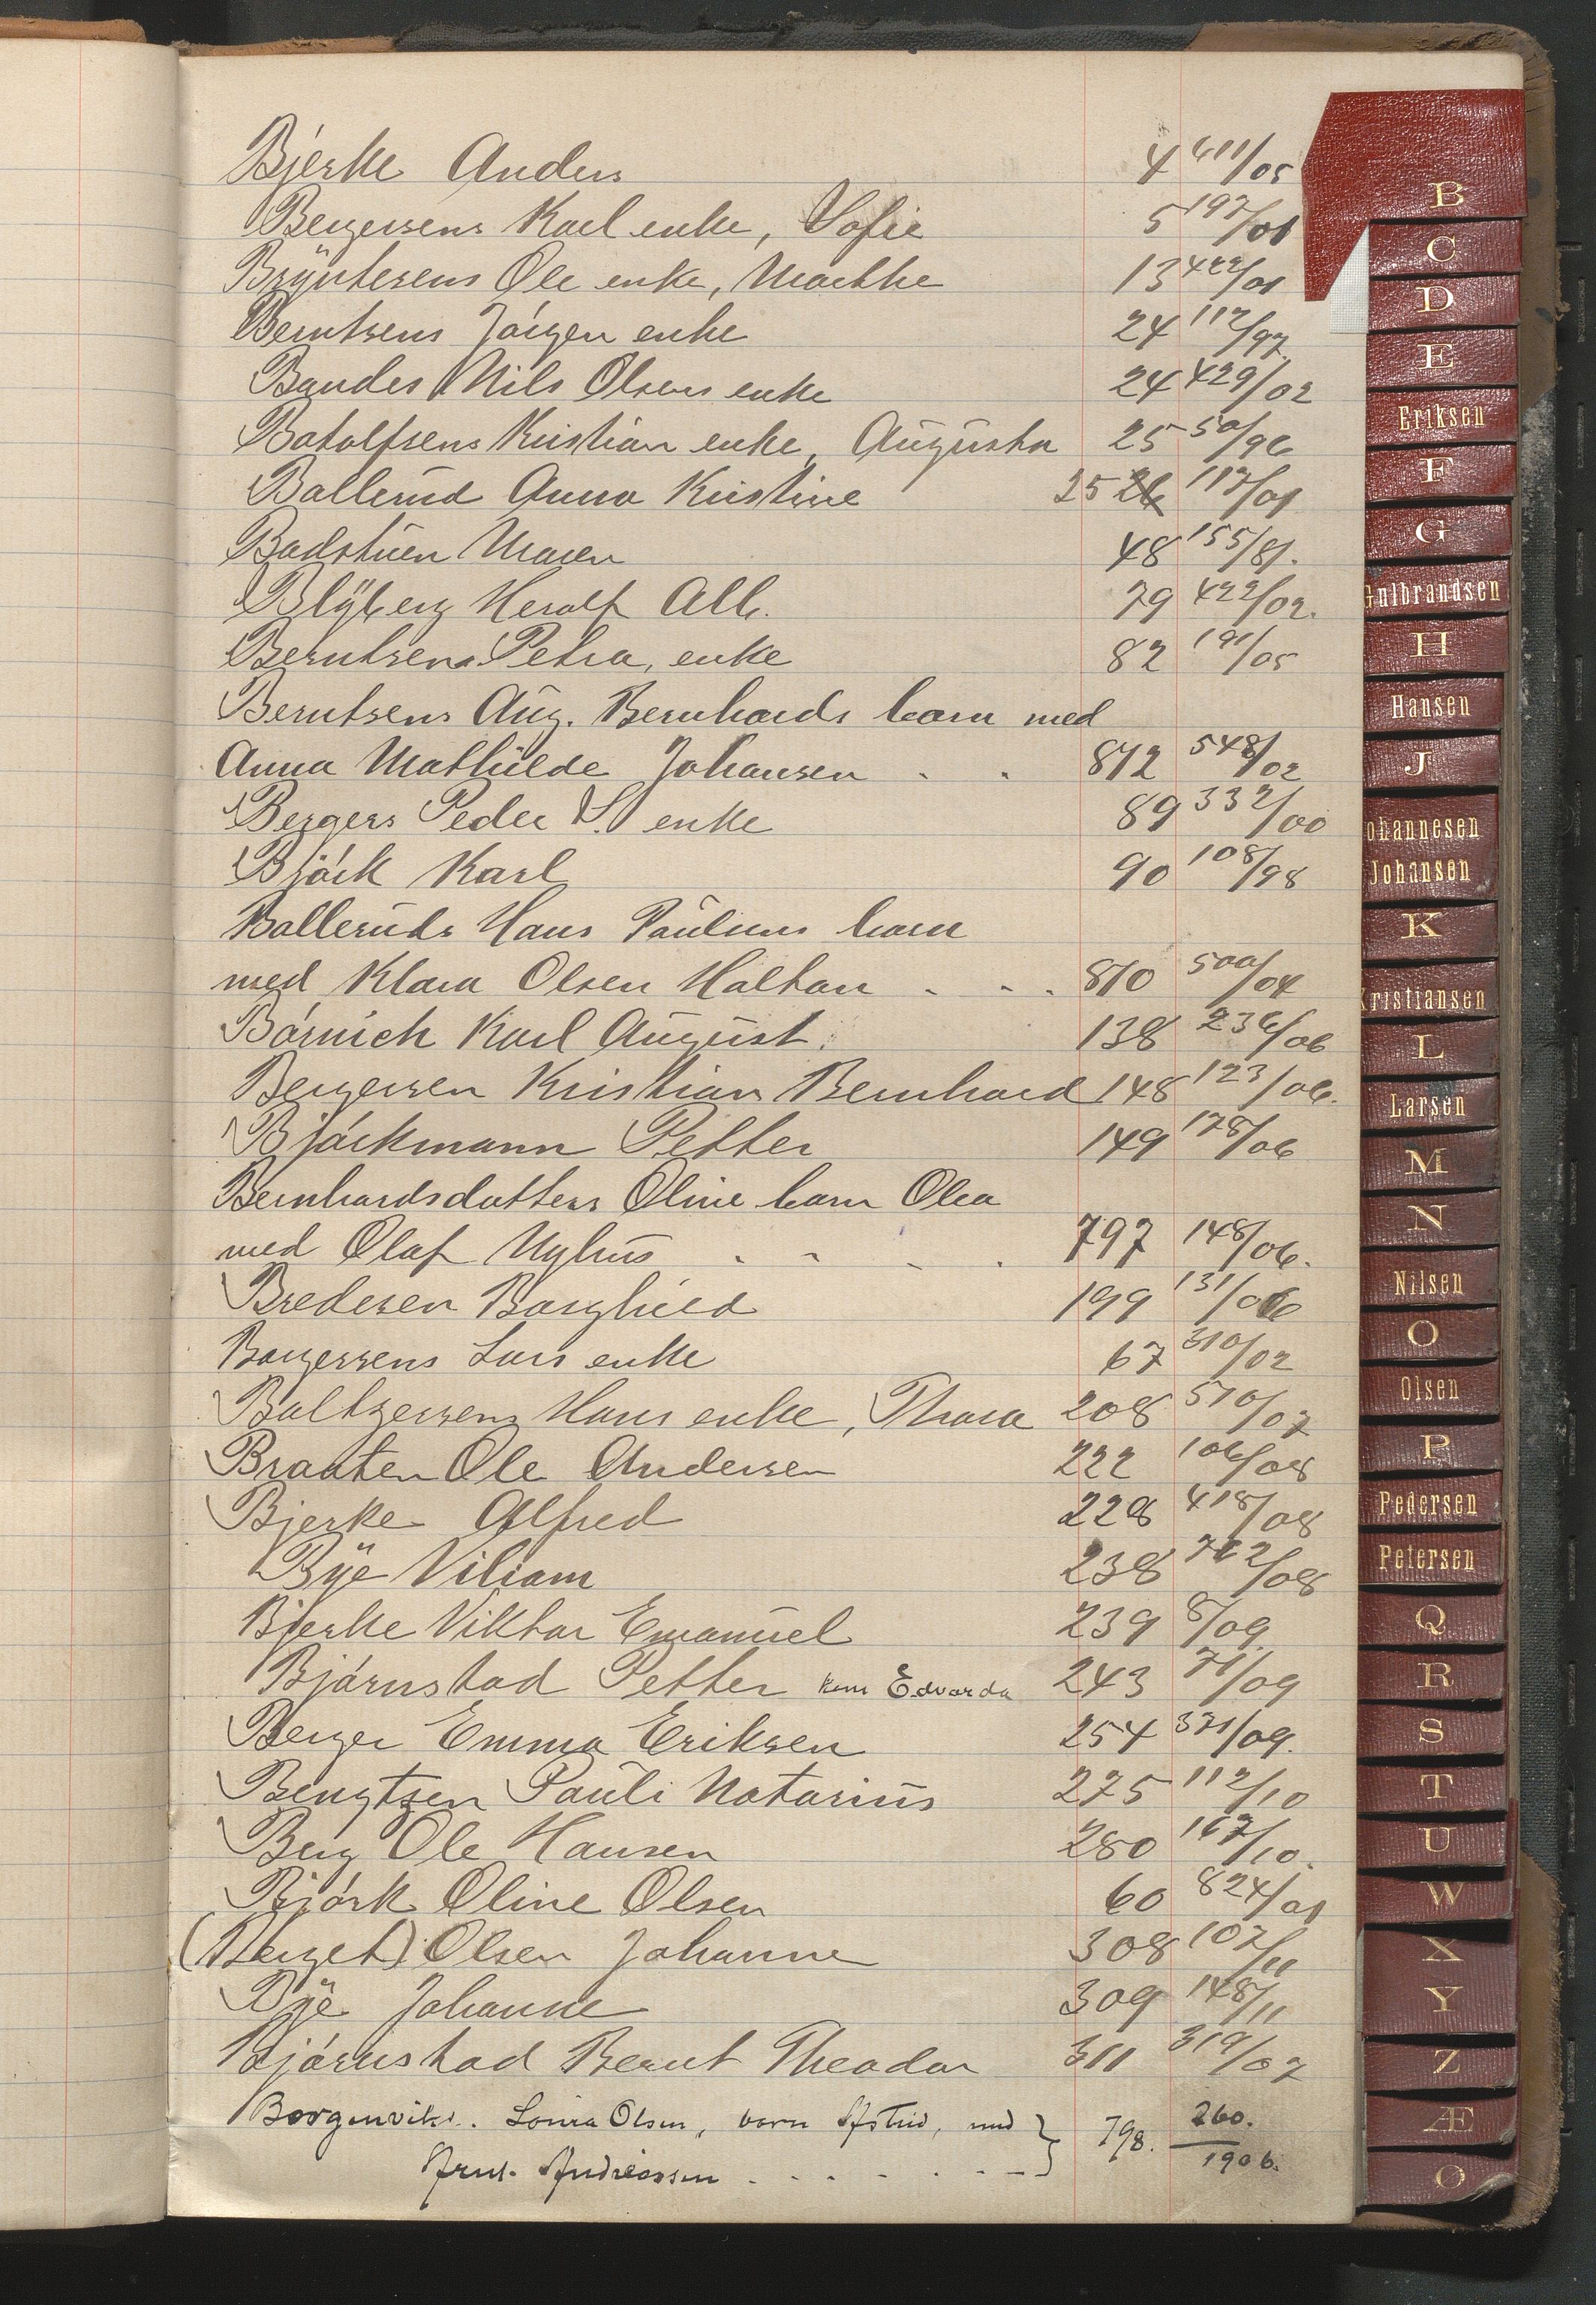 Bjerke Anders 4 611/05
Bergersens Karl enke, Sofie 5 197/01
Bryntesens Ole enke, Marthe 13 422/01
Berntsens Jörgen enke 24 112/97.
Bandes Nils Olsens enke 24 429/02
Botolfsens Kristian enke, Augusta 25 50/96
Ballerud Anna Kristine 25 26 117/01
Badstuen Maren 48 155/81.
Blÿberg Herolf Alb. 79 422/02.
Berntsens Petra, enke 82 191/05
Berntsens Aug. Bernhards barn med
Anna Mathilde Johansen . . 872 548/02
Bergers Peder S. enke 89 332/00
Björk Karl 90 108/98
Balleruds Hans Paulsens barn
med Klara Olsen Holtan . . . 870 500/04
Börnich Karl August. 138 236/06
Bergersen Kristian Bernhard 148 123/06.
Björkmann Petter 149 178/06
Bernhardsdatters Oline barn Olea
med Olaf Nyhus . . . . 797 148/06.
Bredesen Borghild 199 131/06
Borgersens Lars enke 67 310/02
Baltzersens Hans enke, Thora 208 510/07
Braaten Ole Andersen 222 106/08
Bjerke Alfred 228 418/08
Bÿe Viliam 238 762/08
Bjerke Viktor Emanuel 239 8/09.
Björnstad Petter kone Edvarda 243 71/09
Berger Emma Eriksen 254 371/09.
Bengtzen Pauli Notarius 275 112/10
Berg Ole Hansen 280 167/10.
Björk Oline Olsen 60 824/01
(Berget) Olsen Johanne 308 107/11
Bÿe Johanne 309 148/11
Björnstad Bernt Theodor 311 319/07
Borgenvik.. Lovisa Olsen, barn Astrid, med } 798. 260.
Arnt. Andreassen . . . . . . 1906.
B
C
D
E
Eriksen
F
G
Gulbrandsen
H
Hansen
J
ohannesen
Johansen
K
Kristiansen
L
Larsen
M
N
Nilsen
O
Olsen
P
Pedersen
Petersen
Q
R
S
T
U
W
X
Y
Z
Æ
Ø